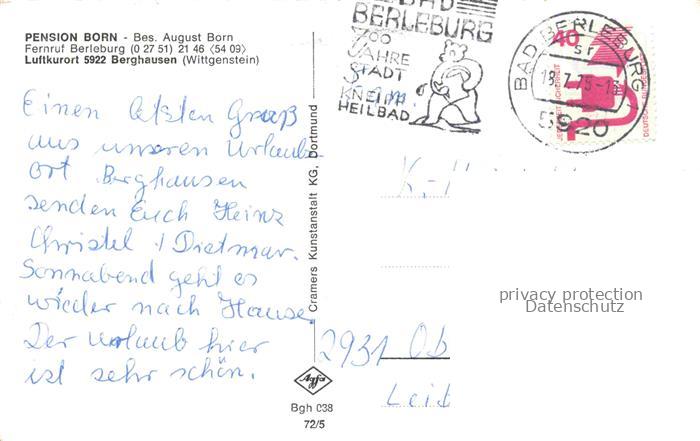 PENSION BORN - Bes. August Born
Fernruf Berleburg (0 27 51) 21 46 <54 09>
Luftkurort 5922 Berghausen (Wittgenstein)
Einen letzten Gruß
aus unseren Urlaubs
ort Berghausen
senden Euch Heinz
Christel / Dietmar.
Sonnabend geht es
wieder nach Hause.
Der Urlaub hier
ist sehr schön.
Cramers Kunstanstalt KG, Dortmund
Agfa
Bgh 038
72/5
BAD
BERLEBURG
700
JAHRE
STADT
KNEIPP
HEILBAD
BAD BERLEBURG
sr
5920
40
DEUTSCHE BUNDESPOST
K.-H
2931 Ob
Leit
privacy protection
Datenschutz